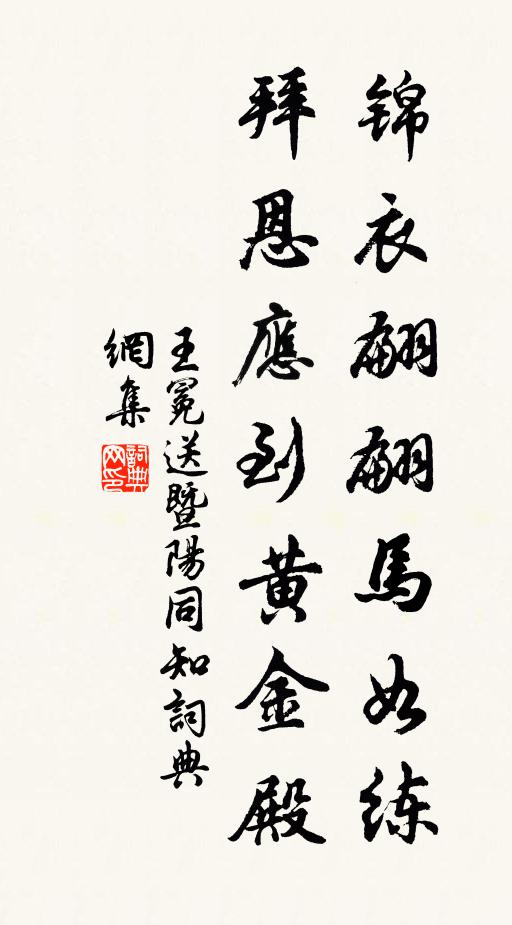 锦衣翩翩馬如练
拜恩應到黄金殿
王冕送暨陽同知詞典
網集
詞典
网印